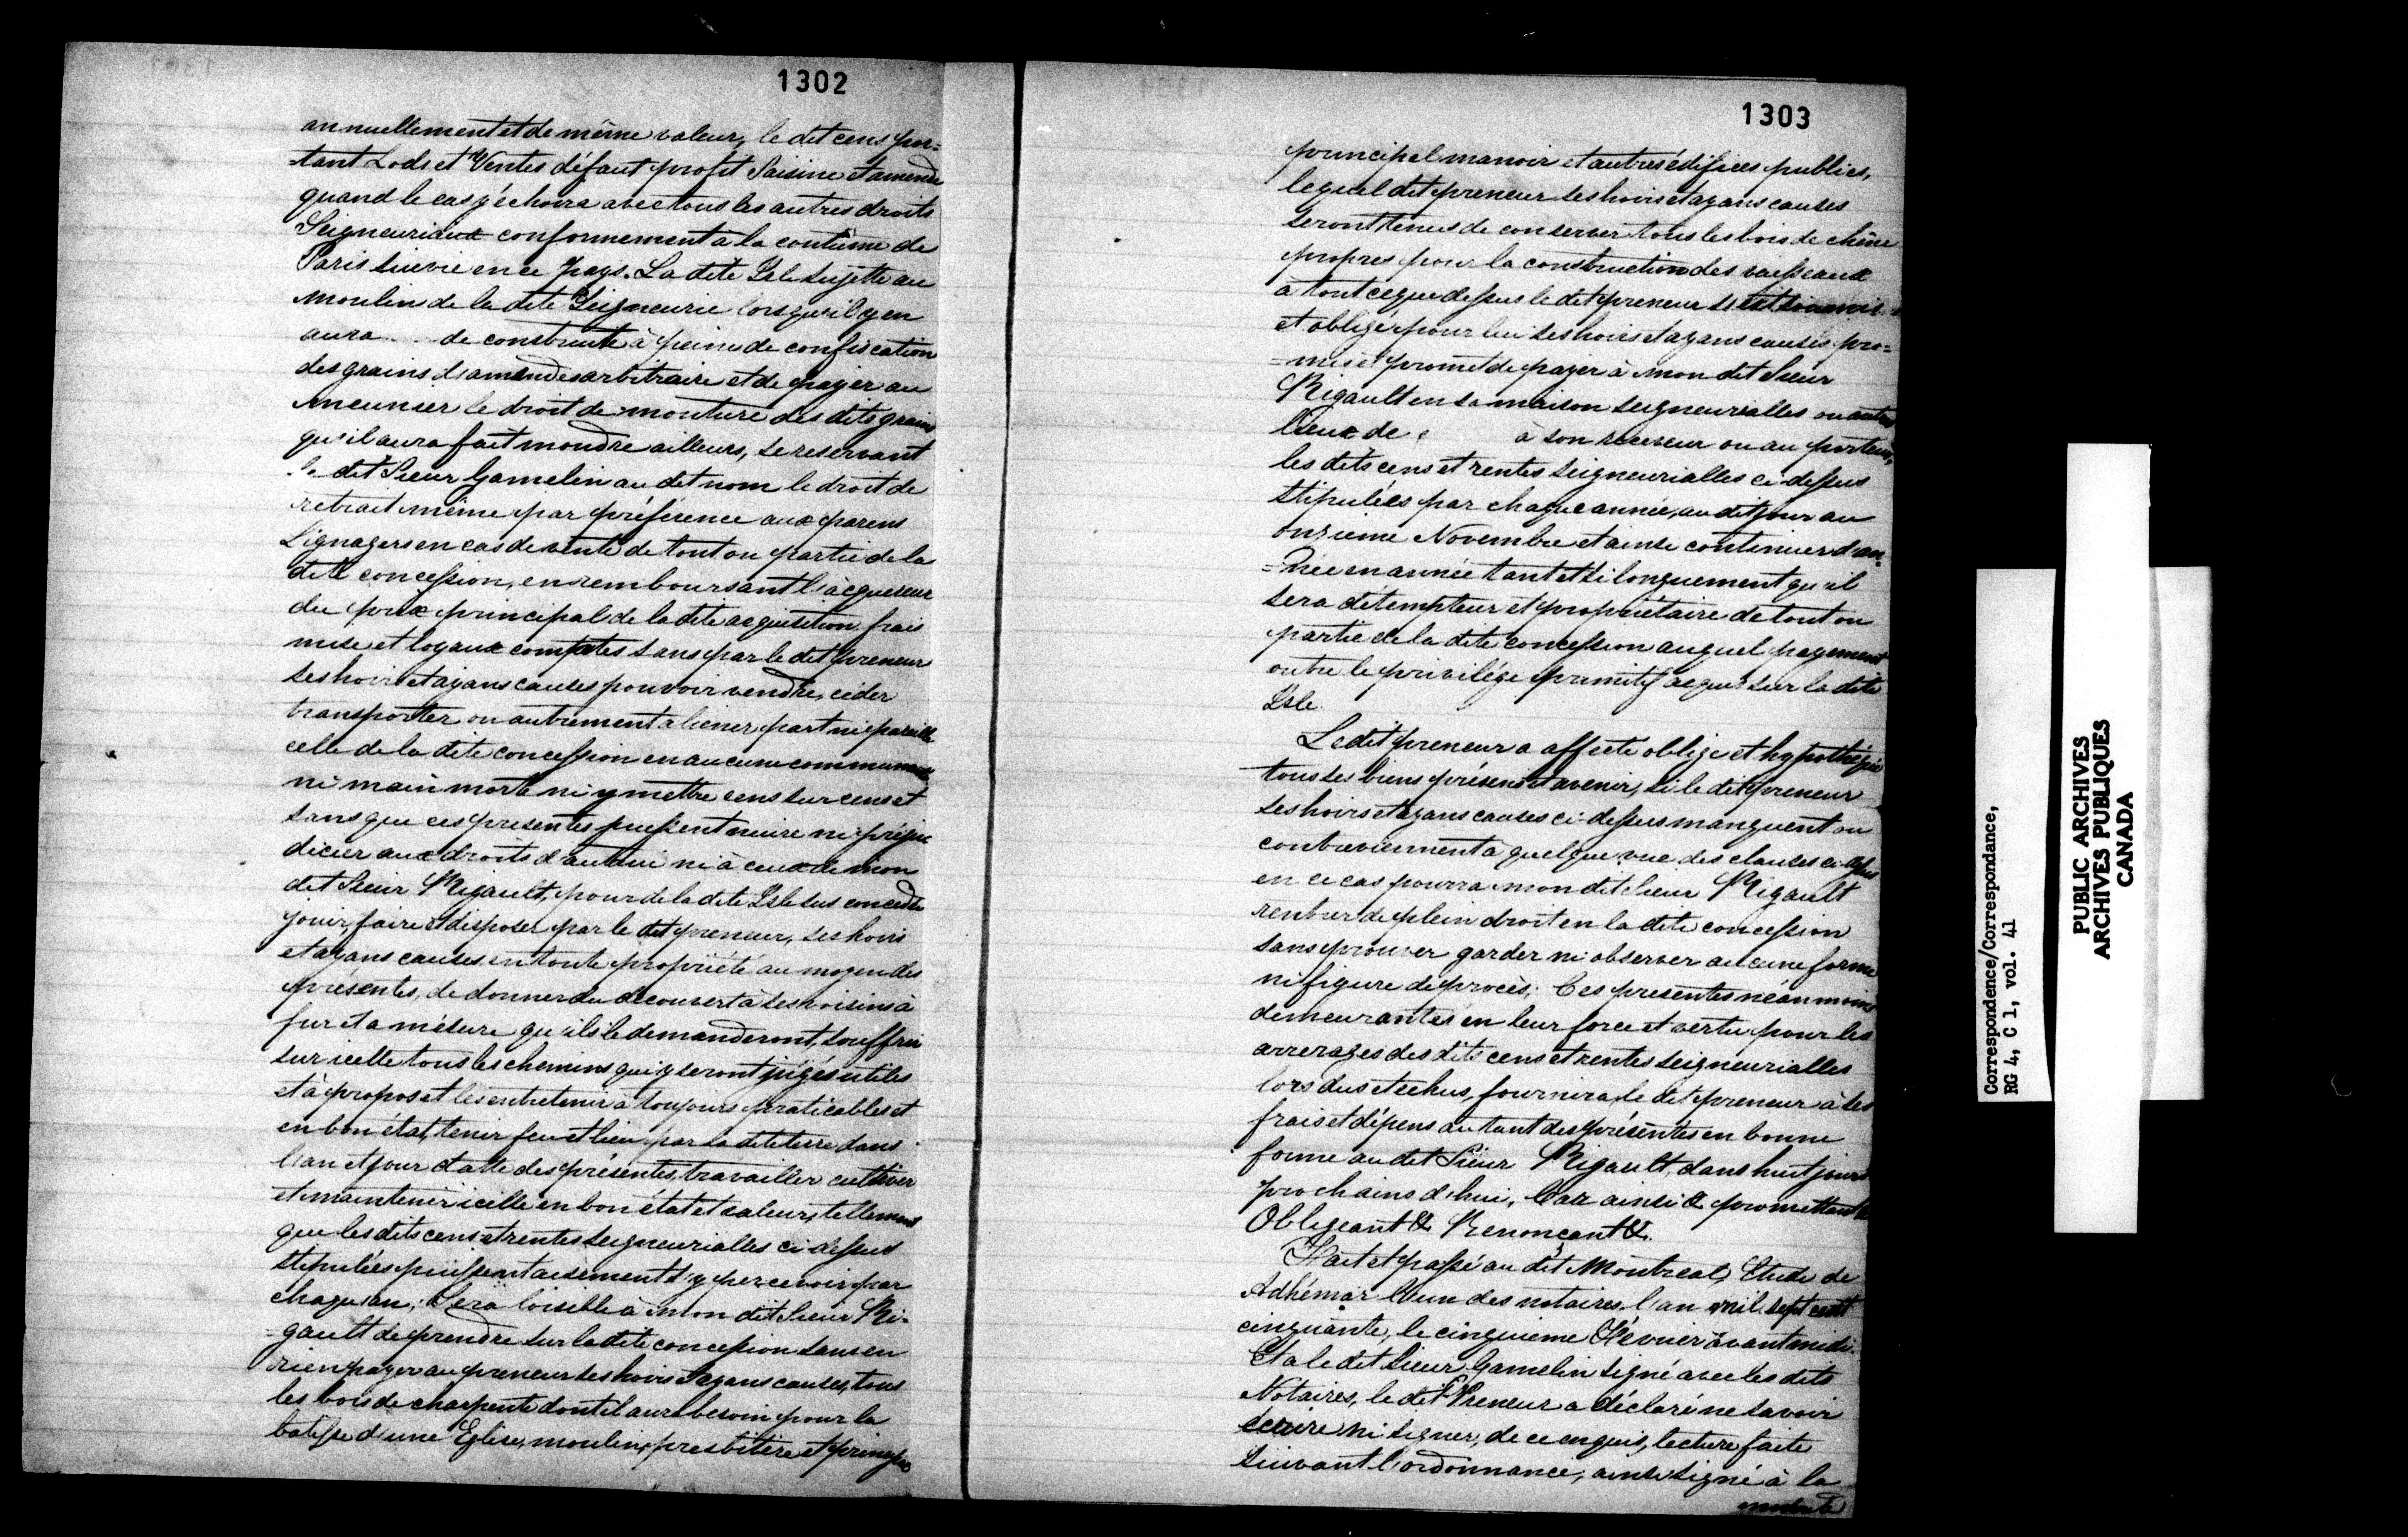 1302
annuellement et de même valeur, le dit cens por=
=tant Lods et Ventes défaut profit Saisine et amende
quand le cas y échoira avec tous les autres droits
Seigneuriaux conformement à la coutume de
Paris suivie en ce pays. La dite Isle sujette au
moulin de la dite Seigneurie lorsqu'il y en
aura .... de construit à peine de confiscation
des grains d'amendes arbitraire et de payer au
meunier le droit de mouture des dits grains
qu'il aura fait moudre ailleurs, se reservant
le dit Sieur Gamelin au dit nom le droit de
retrait même par préférence aux parens
Lignagers en cas de vente de tout ou partie de la
dite concession, en remboursant l'acquereur
du prix principal de la dite acquisition frais
mise et loyaux comptes sans par le dit preneur
ses hoirs et ayans causes pouvoir vendre, céder
transporter ou autrement aliener part ni parcelle
celle de la dite concession en aucune communauté
ni main morte ni y mettre cens sur cens et
sans que ces presentes puissent nuire ni préju
dicier aux droits d'autrui ni à ceux de mon
dit Sieur Rigault, pour de la dite Isle sus concédée
jouir, faire et disposer par le dit preneur, ses hoirs
et ayans causes en toute propriété au moyen des
présentes, de donner du découvert à ses voisins à
fur et a mésure qu'ils le demanderont, souffrir
sur icelle tous les chemins qui y seront jugés utiles
et à propos et les entretenir à toujours praticables et
en bon état, tenir feu et lieu par la dite terre dans
l'an et jour datte des présentes, travailler cultiver
et maintenir icelle en bon état et valeur, tellement
que les dits cens et rentes seigneurialles ci dessus
stipulées puissent aisement s'y percevoir par
chaque an; Sera loisible à mon dit Sieur Ri-
=gault de prendre sur la dite concession sans en
rien payer au preneur ses hoirs & ayans causes, tous
les bois de charpente dont il aura besoin pour la
batisse d'une Eglise, moulin, presbitère et
1303
principal manoir et autres édifices publics,
lequel dit preneur ses hoirs et ayans causes
seront tenus de conserver tous les bois de chêne
propres pour la construction des vaisseaux
à tout ce que dessus le dit preneur s'est soumis
et obligé pour lui ses hoirs et ayans causes pro=
=mis et promet de payer à mon dit Sieur
Rigault en sa maison seigneurialles ou autres
lieux de à son receveur ou au porteur,
les dits cens et rentes seigneurialles ci-dessus
stipulées par chaque année, au dit jour au
onzieme Novembre et ainsi continuer d'an-
=née en année tant et si longuement qu'il
sera détempteur et propriétaire de tout ou
partie de la dite concession auquel payement
outre le privilége primitif acquis sur la dite
Isle.
Le dit preneur a affecté obligé et hypothéqué
tous ses biens présens et avenir, si le dit preneur
ses hoirs et ayans causes ci-dessus manquent ou
contreviennent à quelque une des clauses ci-dessus
en ce cas pourra mon dit Sieur Rigault
rentrer de plein droit en la dite concession
sans prouver garder ni observer aucune forme
ni figure de procès; Ces presentes néanmoins
demeurantes en leur force et vertu pour les
arrerages des dits cens et rentes seigneurialles
lors dus et echus, fournira, le dit preneur à ses
frais et dépens autant des présentes en bonne
forme au dit Sieur Rigault, dans huit jours
prochains d'hui, Car ainsi & promettant &
Obligeant & Renonçant &.
Fait et passé au dit Montreal, Etude de
Adhémar l'un des notaires, l'an mil sept cent
cinquante, le cinquieme Février avant midi.
Et a le dit Sieur Gamelin signé avec les dits
Notaires, le dit Preneur a déclaré ne savoir
écrire ni signer, de ce enquis, lecture faite
suivant l'ordonnance, ainsi signé à la
minute
Correspondence/Correspondance,
RG 4, C 1, vol. 41
PUBLIC ARCHIVES
ARCHIVES PUBLIQUES
CANADA